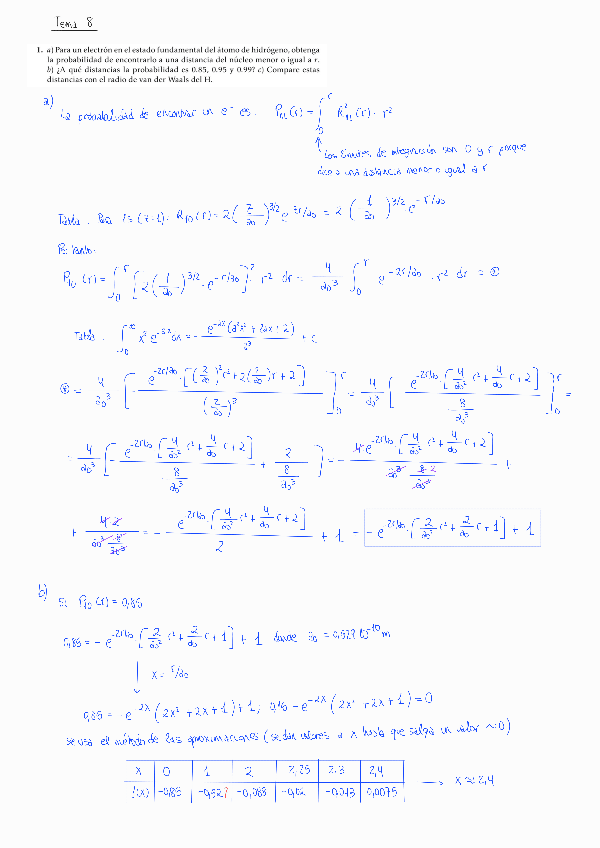 Tema 8
1. a) Para un electrón en el estado fundamental del átomo de hidrógeno, obtenga
la probabilidad de encontrarlo a una distancia del núcleo menor o igual a r.
b) ¿A qué distancias la probabilidad es 0.85, 0.95 y 0.99? c) Compare estas
distancias con el radio de van der Waals del H.
a) La probabilidad de encontrar un e⁻ es: P₁₀(r) = ∫₀^r R²₁₀(r) · r²
Los límites de integración son 0 y r porque
dice a una distancia menor o igual a r
Tabla. Para 1s (z=1). R₁₀(r) = 2(z/a₀)^3/2 e^-zr/a₀ = 2(1/a₀)^3/2 e^-r/a₀
Por tanto:
P₁₀(r) = ∫₀^r [2(1/a₀)^3/2 · e^-r/a₀]² r² dr = 4/a₀³ ∫₀^r e^-2r/a₀ · r² dr = ⊛
Tabla. ∫₀^∞ x² e^-ax dx = - e^-ax(a²x² + 2ax + 2)/a³ + c
⊛ = 4/a₀³ [- e^-2r/a₀ · [(2/a₀)² r² + 2(2/a₀)r + 2] / (2/a₀)³]₀^r = 4/a₀³ [- e^-2r/a₀ [4/a₀² r² + 4/a₀ r + 2] / 8/a₀³]₀^r =
4/a₀³ [- e^-2r/a₀ [4/a₀² r² + 4/a₀ r + 2] / 8/a₀³ + 2 / 8/a₀³] = - 4 e^-2r/a₀ [4/a₀² r² + 4/a₀ r + 2] / a₀³ 8·2/a₀³ +
+ 4·2 / a₀³ 8/a₀³ = - e^-2r/a₀ [4/a₀² r² + 4/a₀ r + 2] / 2 + 1 = - e^-2r/a₀ [2/a₀² r² + 2/a₀ r + 1] + 1
b) Si P₁₀(r) = 0,85
0,85 = - e^-2r/a₀ [2/a₀² r² + 2/a₀ r + 1] + 1 donde a₀ = 0,529·10^-10 m
x = r/a₀
0,85 = - e^-2x (2x² + 2x + 1) + 1; 0,15 - e^-2x (2x² + 2x + 1) = 0
se usa el método de las aproximaciones (se dan valores a x hasta que salga un valor ≈ 0)
x 0 1 2 2,25 2,3 2,4
f(x) -0,85 -0,527 -0,088 -0,02 -0,013 0,0075 → x ≈ 2,4